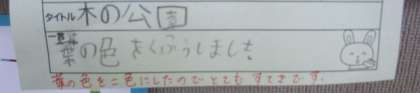 タイトル 木の公園
葉の色をくふうしました
葉の色を二色にしたのでとてもすてきです。